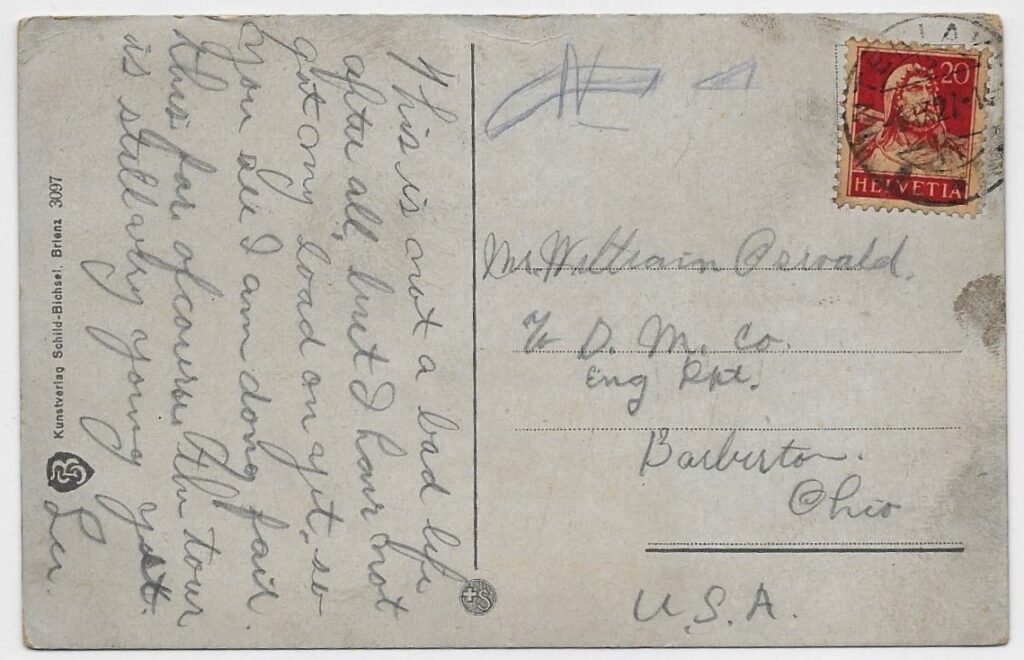 This is not a bad life
after all, but I have not
got my load on yet, so
you see I am dong fair
this far ofcourse the tour
is still avery young yet.
Lee
Kunstverlag Schild-Bichsel, Brienz 3097
20
HELVETIA
Mr. William Oswald.
% D. M. Co.
Eng Dpt.
Barberton.
Ohio
U.S.A.